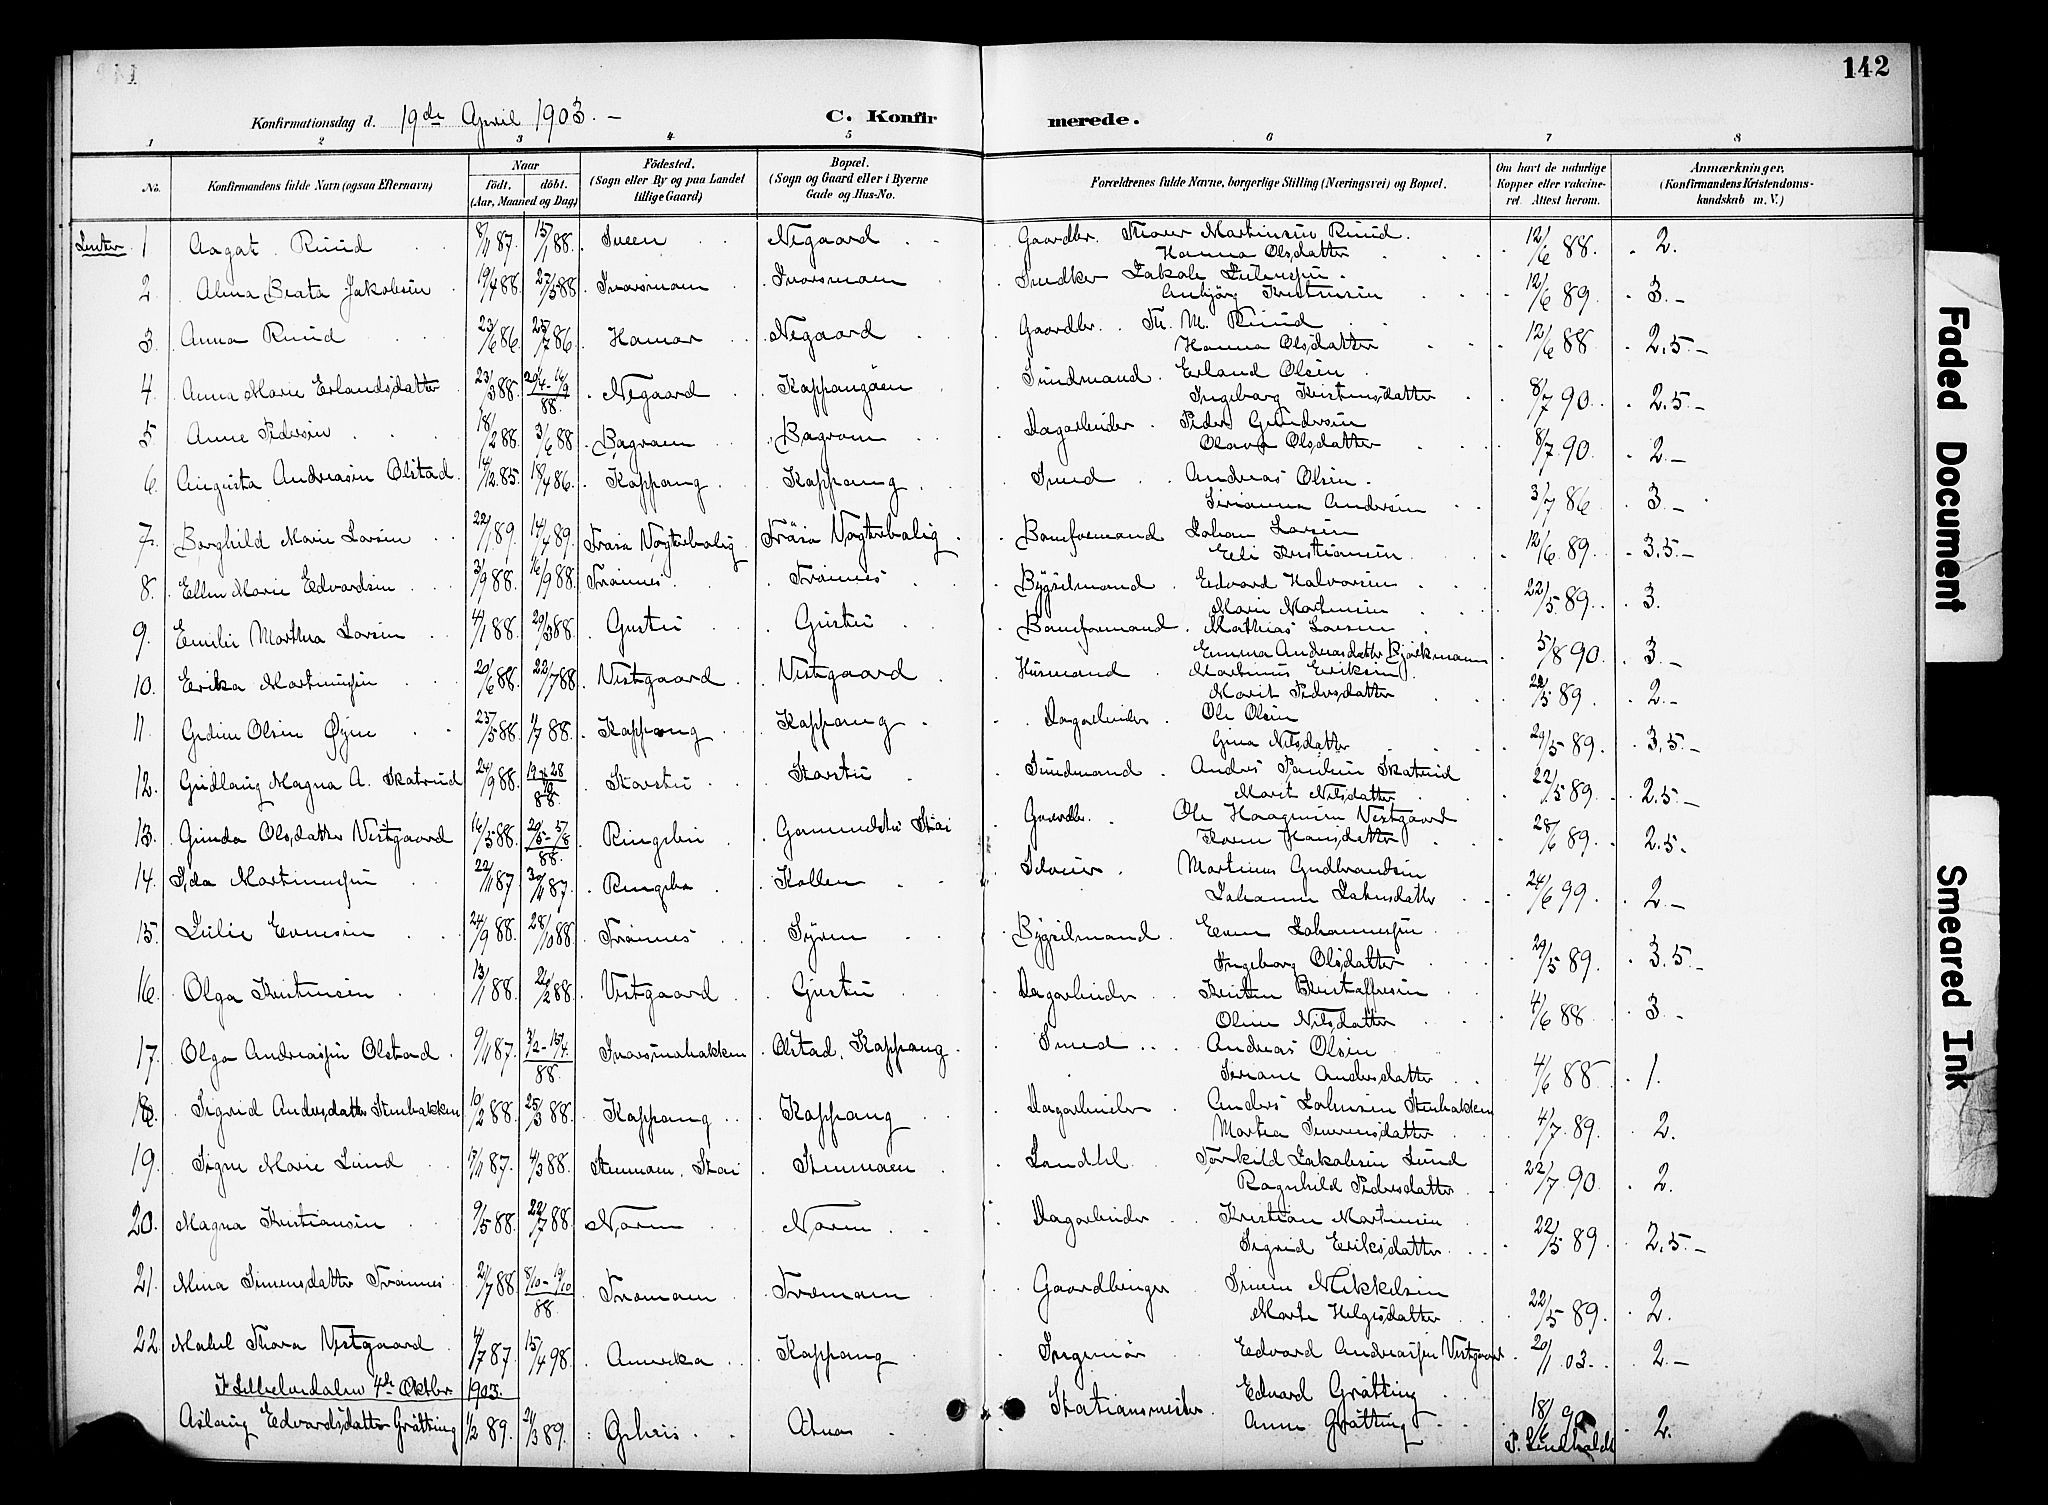 142
Konfirmationsdag d. 19de April 1903. –
C. Konfirmerede.
1 2 3 4 5 6 7 8
No.
Konfirmandens fulde Navn (ogsaa Efternavn)
Naar
født. døbt.
(Aar, Maaned og Dag)
Fødested.
(Sogn eller By og paa Landet tillige Gaard)
Bopæl.
(Sogn og Gaard eller i Byerne Gade og Hus-No.
Forældrenes fulde Navne, borgerlige Stilling (Næringsvei) og Bopæl.
Om havt de naturlige Kopper eller vaccineret. Attest herom.
Anmærkninger.
(Konfirmandens Kristendomskundskab m. V.)
1 Aagot Ruud 8/11 87. 15/1 88. Negaard Gaardbr. Thorer Martinsen Ruud. 12/6 88. 2.
Hanna Olsdatter
2. Alma Beata Jakobsen 19/4 88. 27/5 88 Ivarsmoen Ivarsmoen Jakob 12/6 89. 3.–
3. Anna Ruud 23/6 86. 25/7 86. Hamar Negaard Gaardbr. Th. M. Ruud 12/6 88 2,5.–
Hanna Olsdatter
4. Anna Marie Erlandsdatter 23/3 88. 88. Negaard Koppangöen Sundmand. Erland Olsen 8/7 90. 2.5.–
Ingeborg Kristensdatter
5 Anne Pedersen 18/2 88. 3/6 88 Bagmoen Dagarbeider Peder Gundersen 8/7 90. 2.–
Olava Olsdatter
6. Augusta Andreasen Olstad 14/12 85. 18/4 86. Koppang Koppang Smed Andreas Olsen 3/7 86 3.–
Andersen
7. Borghild Marie Larsen 22/1 89. 14/4 89. Vogterbolig Vogterbolig Baneformand Johan Larsen 12/6. 89. 3.5.–
Eli Kristiansen
8. Ellen Marie Edvardsen 3/9 88. 16/9 88. Trönnes Trönnes Bygselmand Edvard Halvorsen 22/5 89. 3.
Marie Martinsen
9. Emilie Marthea Larsen 4/1 88. 20/3 88. Gustu Gustu Baneformand. Mathias Larsen 5/8 90. 3.–
Emma Andreasdatter Björkmann
10. Erika Martinussen 20/6 88. 22/7 88 Vestgaard Vestgaard Husmand Martinus Eriksen 22/5 89. 2.–
Marit Pedersdatter
11. Olsen Öyen 25/5 88. 1/7 88. Koppang Koppang Dagarbeider Ole Olsen 29/5 89. 3,5.–
Gina Nilsdatter
12. Gudlaug Magna A. Skatrud 24/9 88. 88. Storstu Storstu Sundmand Anders Paulsen Skatrud 22/5 89. 2.5.–
Marit Nilsdatter
13. Gunda Olsdatter Vestgaard 16/5 88. 88. Ringebu Stai Gaardbr. Ole Haagensen Vestgaard 28/6 89. 2.5.
Karen Hansdatter
14. Ida Martinussen 22/11 87 30/11 87. Ringebu Kollen Martinus Gudbrandsen 24/6 99 2.–
Johanne
15. Julie Evensen 24/9 88. 28/10 88. Trönnes Bygselmand. Even Johannessen 29/5 89. 3.5.–
Ingeborg Olsdatter
16. Olga Kristensen 13/1 88. 26/2 88. Vestgaard Gustu Dagarbeider Kristen Kristoffersen 4/6 88 3.–
Oline Nilsdatter
17. Olga Andreassen Olstad 9/11 87. 3/2 – 15/4. 88. Olstad, Koppang Smed Andreas Olsen 4/6 88 1.
Andersdatter
18. Sigrid Andersdatter Stenbakken 10/2 88. 25/3 88. Koppang Koppang Dagarbeider Anders Johnsen Stenbakken 4/7. 89. 2.
Martea Simensdatter
19. Signe Marie Lund 87. 4/3 88. Stenmoen. Stai Stenmoen Landhl. Torkild Jakobsen Lund 22/7 90. 2.
Ragnhild Pedersdatter
20. Magna Kristiansen 9/5 88. 22/7 88. Noren Noren Dagarbeider Kristian Martinsen 22/5 89. 2,5.–
Sigrid Eriksdatter
21. Mina Simensdatter Trönnes 2/7 88. 8/10 – 19/10 88 Tromoen Tromoen Gaardbruger Simen Mikkelsen 22/5 89. 2.
Marte Helgesdatter
22. Mabel Thora Vestgaard 4/7 87. 15/4 98. Amerika Koppang Ingeniör Edvard Andreassen Vestgaard 20/1. 03. 2.–
I Lilleelvedalen 4de Oktbr. 1903.
Aslaug Edvardsdatter Grötting 1/2 89. 21/3 89. Atna Stationsmester Edvard Grötting 18/6 2.
Anne Grötting
P. Lindholdt
Faded Document
Smeared Ink